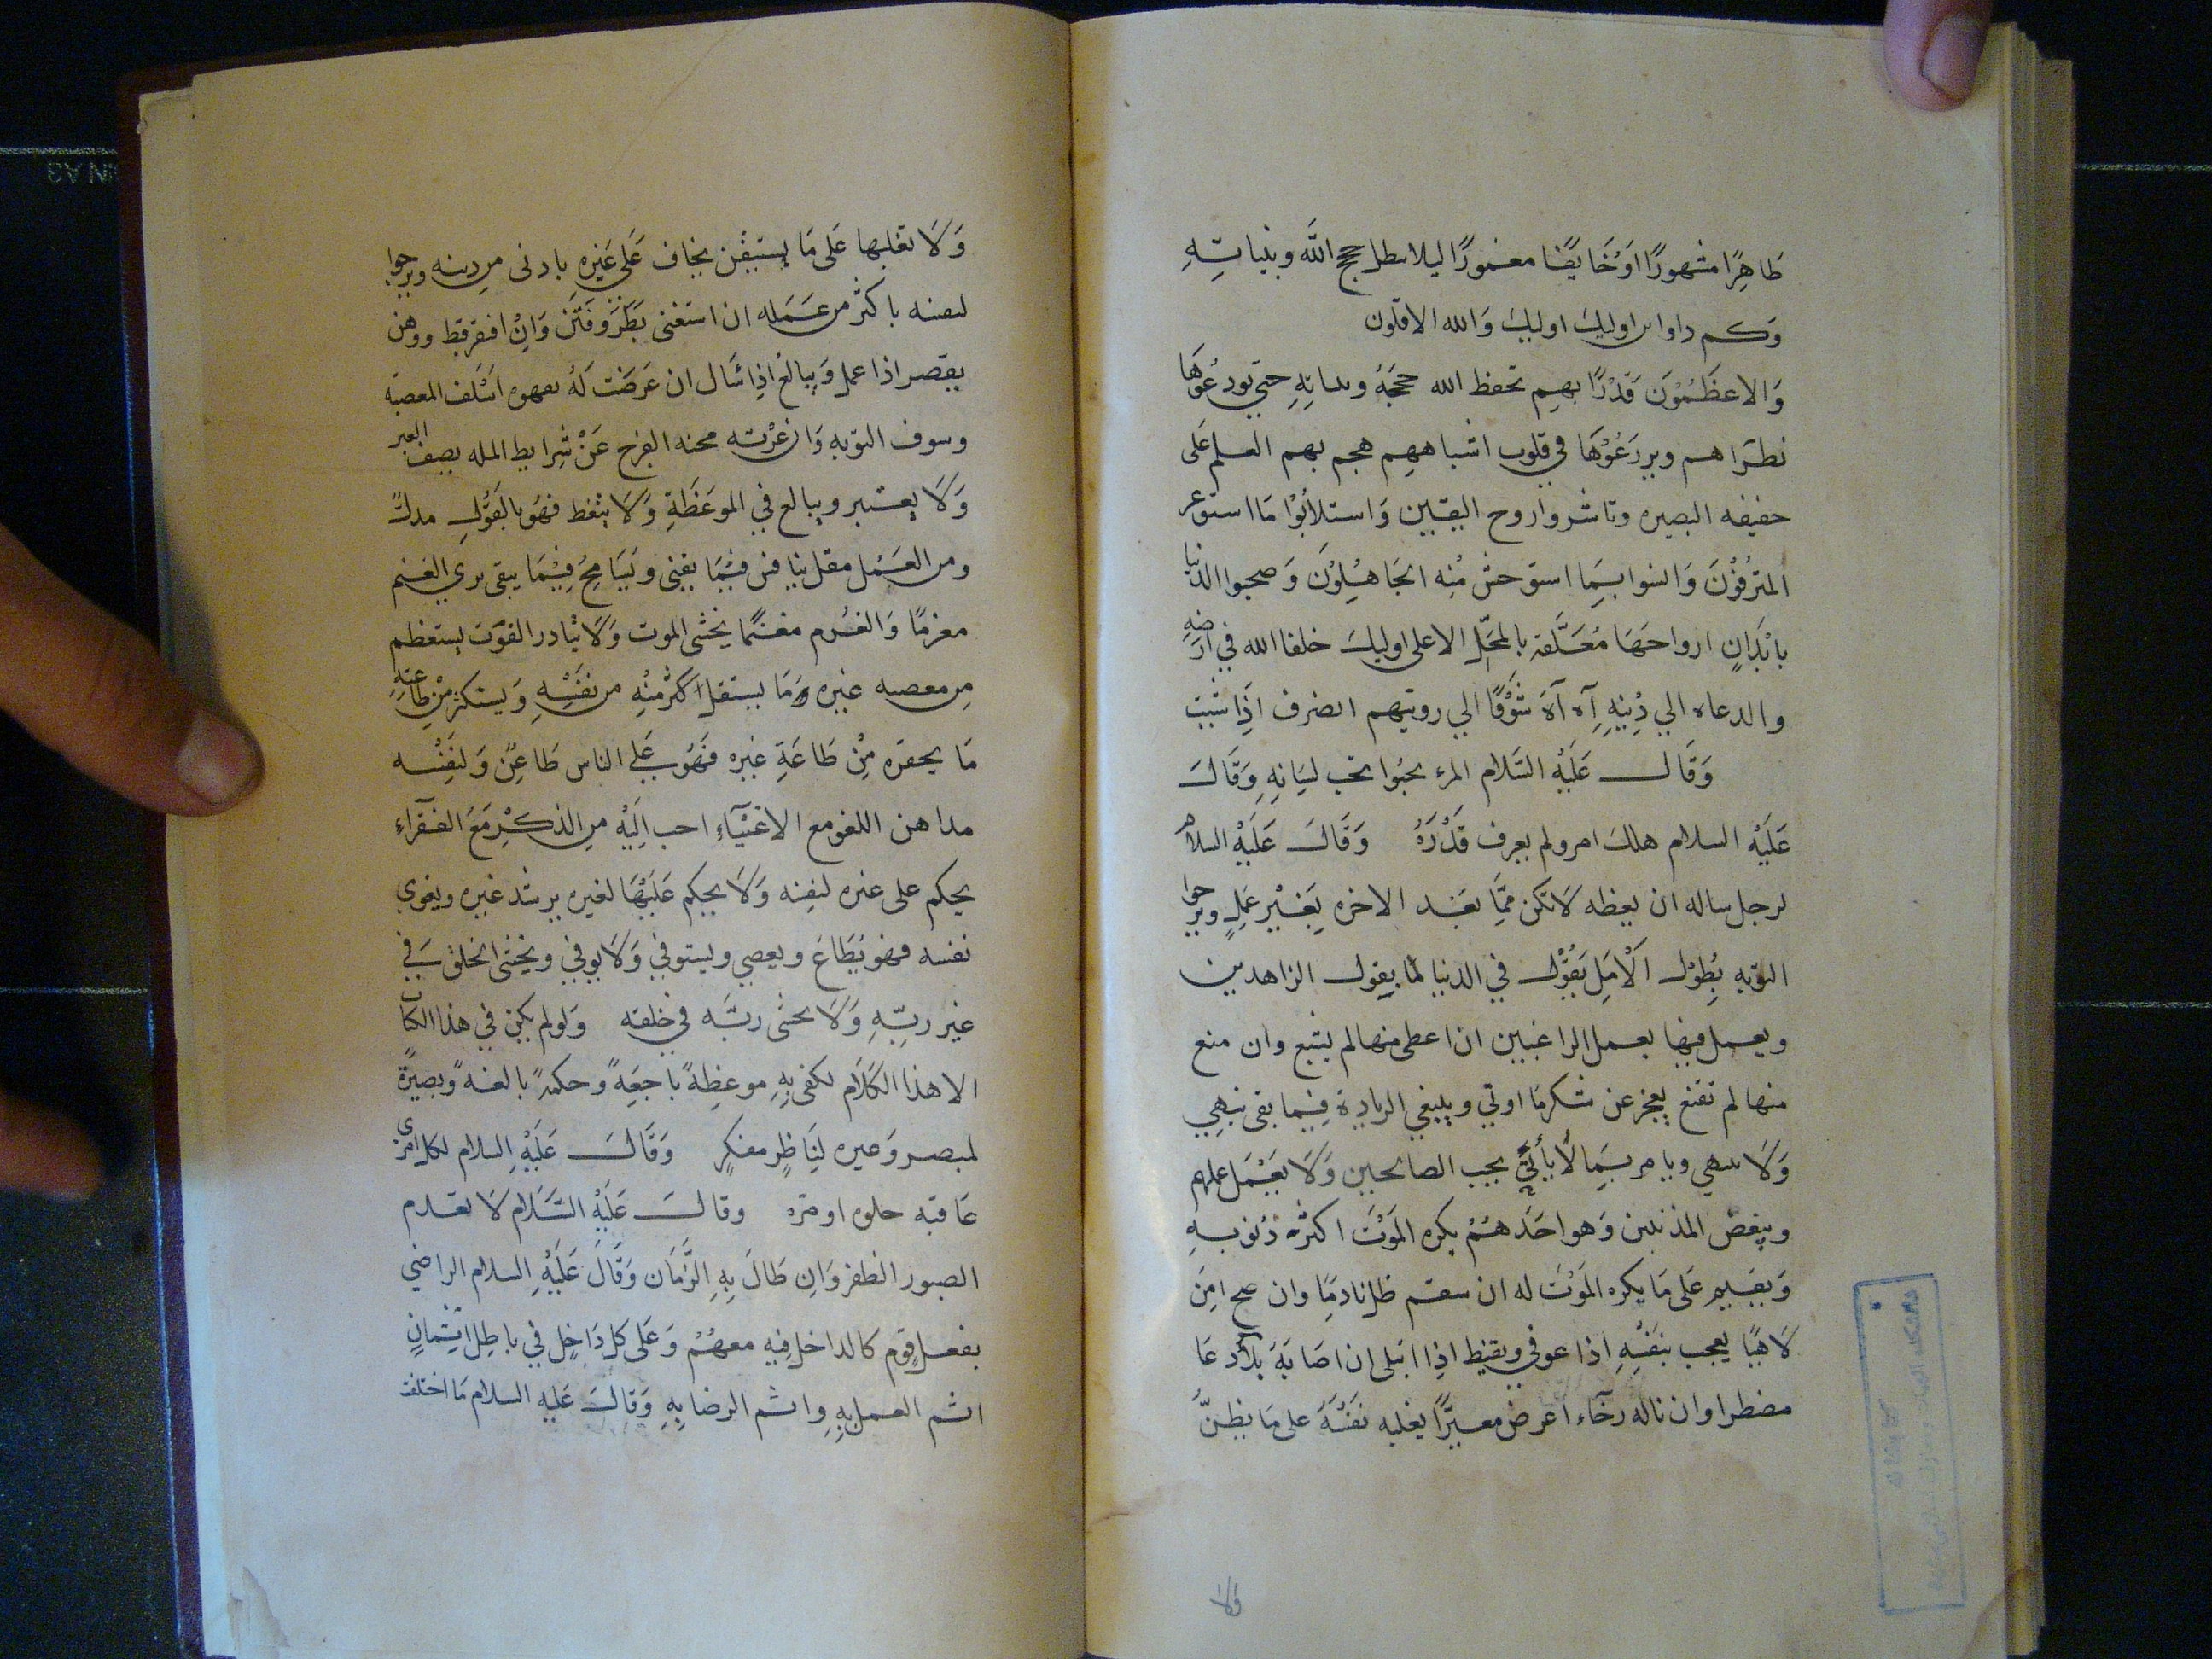 ظَاهِرًا مشهورًا اوْ خَايفًا مغمورًا ليلا تبطل حجج الله وبنياتِهِ
وَكم ذا واىن اوليك اوليك وَالله الاقلون
وَالاعظَمُوْن قَدْرًا بهِم تحفظ الله حججَهُ وبىناتِهِ حتي يودعُوْهَا
نظرَاهم ويزرَعُوْهَا في قلوب اشباههِم هجم بهم العلم عَلى
حقيقه البصيره وباشروا روح اليقين وَاستلانُوْا مَا استوعر
المترفُوْنَ وَانسوا بِمَا استوحش مُنِه الجَاهِلُوْنَ وَصحبوا الدنيا
بابْدَانٍ ارواحهَا مُعَلَّقة بالمحَلّ الاعلى اوليك خلفا الله في ارْضِهِ
والدعاه الي دِيْنِهِ آه آه شوْقًا الي رويتهم انصرف اذِا شيت
وَقَالَ عَلَيْهِ السَّلام المرء مخبوا تحت لسَانِهِ وَقَالَ
عَلَيْهِ السلام هلك امرو لم يعرف قَدْرَهُ وَقَالَ عَلَيْهِ السلام
لرجل ساله ان يعظه لَا تكن ممَّن يعَبد الاخره بِغَيْر عَمَلٍ ويرجوا
التوبه بُطِوْل الْاَمَل يَقُوْل في الدنيا لما يقول الزاهدين
ويعمل فيها بعمل الراغبين ان اعطى منها لم يشبع وان منع
منها لم تقنع يعجز عن شكر مَا اوتي ويبتغي الزيادة فِيْما بقى ينهِي
وَلَا ىىىهي ويامر بمَا لَا يأتي يحب الصالحين وَلَا يعْمَل عملهم
ويبغض المذنبين وَهو احَدهُمْ يكره المَوْتَ اكثره ذُنوبهِ
وَيقيم عَلى مَا يكره المَوْتَ له ان سقم ظل نادمًا وان صح امِنَ
لَاهيًا يعجب بنفْسِهِ اذا عوفي ويقنط اذِا ابتلى ان اصَابَهُ بلاء دعَا
مضطرا وان ناله رخآء اعرض مغترًا يغلبه نفْسُهُ على مَا يظنُّ
ولا
وَلَا يغلبها عَلى مَا يستيقن يخاف عَلى غَيْرِهِ بادنى من ذنبه ويرجوا
لنفسه باكثر من عَمَله ان استغنى بَطَرَ وفَتَنَ وَانْ افتقر قنط ووهن
يقصر اذا عمل وَيبالغ اذِا سَال ان عَرضَت لَهُ شهوه اسْلَف المعصيه
وسوف التوبه وَان عَرْته محنه انفرج عَنْ شرايط المله يصف العبر
وَلَا يعتبر ويبالغ في الموعَظَةِ وَلَا يتعظ فهُو بالقَوْلِ مدلٌ
ومن العَمْل مقل ينافس فيْمَا يفنى وَيُسَامِحُ فِيْمَا يبقى يري الغنم
مغرمًا وَالغُرم مغنمًا يخشى الموت وَلَا يُبادر الفوَت يستعظم
من معصيه غيره وَمَا يستقل اكثر مْنِه من نفْسِهِ وَيستكثر مْن طاعَتِهِ
مَا يحقره مِنْ طَاعَةِ غيره فَهُو عَلى الناس طَاعِنٌ وَلنَفِسْه
مداهن اللغو مع الاغنيَآءِ احب اِلَيْهِ من الذكْرِ مَعَ الفقَراءِ
يحكم على غيره لنفِسه وَلَا يحكم عَلَيْهَا لغيره يرشد غيره ويغوي
نفسه فهو يُطَاعَ ويعصي ويستوفي وَلَا يوفي ويخشى الخلق في
غير ربّهِ وَلَا يخشى ربَّه في خلقه وَلو لم يكن في هذا الكتاب
الا هذا الكَلَام لكفى بِهِ موعظِةً ناجعَةً وحكمةً بالغةً وبصيرةً
لمبصر وَعبره لنَاظرٍ مفكرٍ وَقَالَ عَلَيْهِ السلام لكل امرئ
عَاقبه حلوه او مره وقالَ عَلَيْهِ السَّلَام لَا يعدم
الصبور الظفر وَان طَالَ بِهِ الزَّمَان وَقَالَ عَلَيْهِ السلام الراضي
بفعل قوم كالداخل فِيهِ معهُمْ وَعَلى كل دَاخِل في باطِل اثِمانِ
اثم العمل بِهِ واثم الرضا بِهِ وَقالَ عَليهِ السلام مَا اختلفت